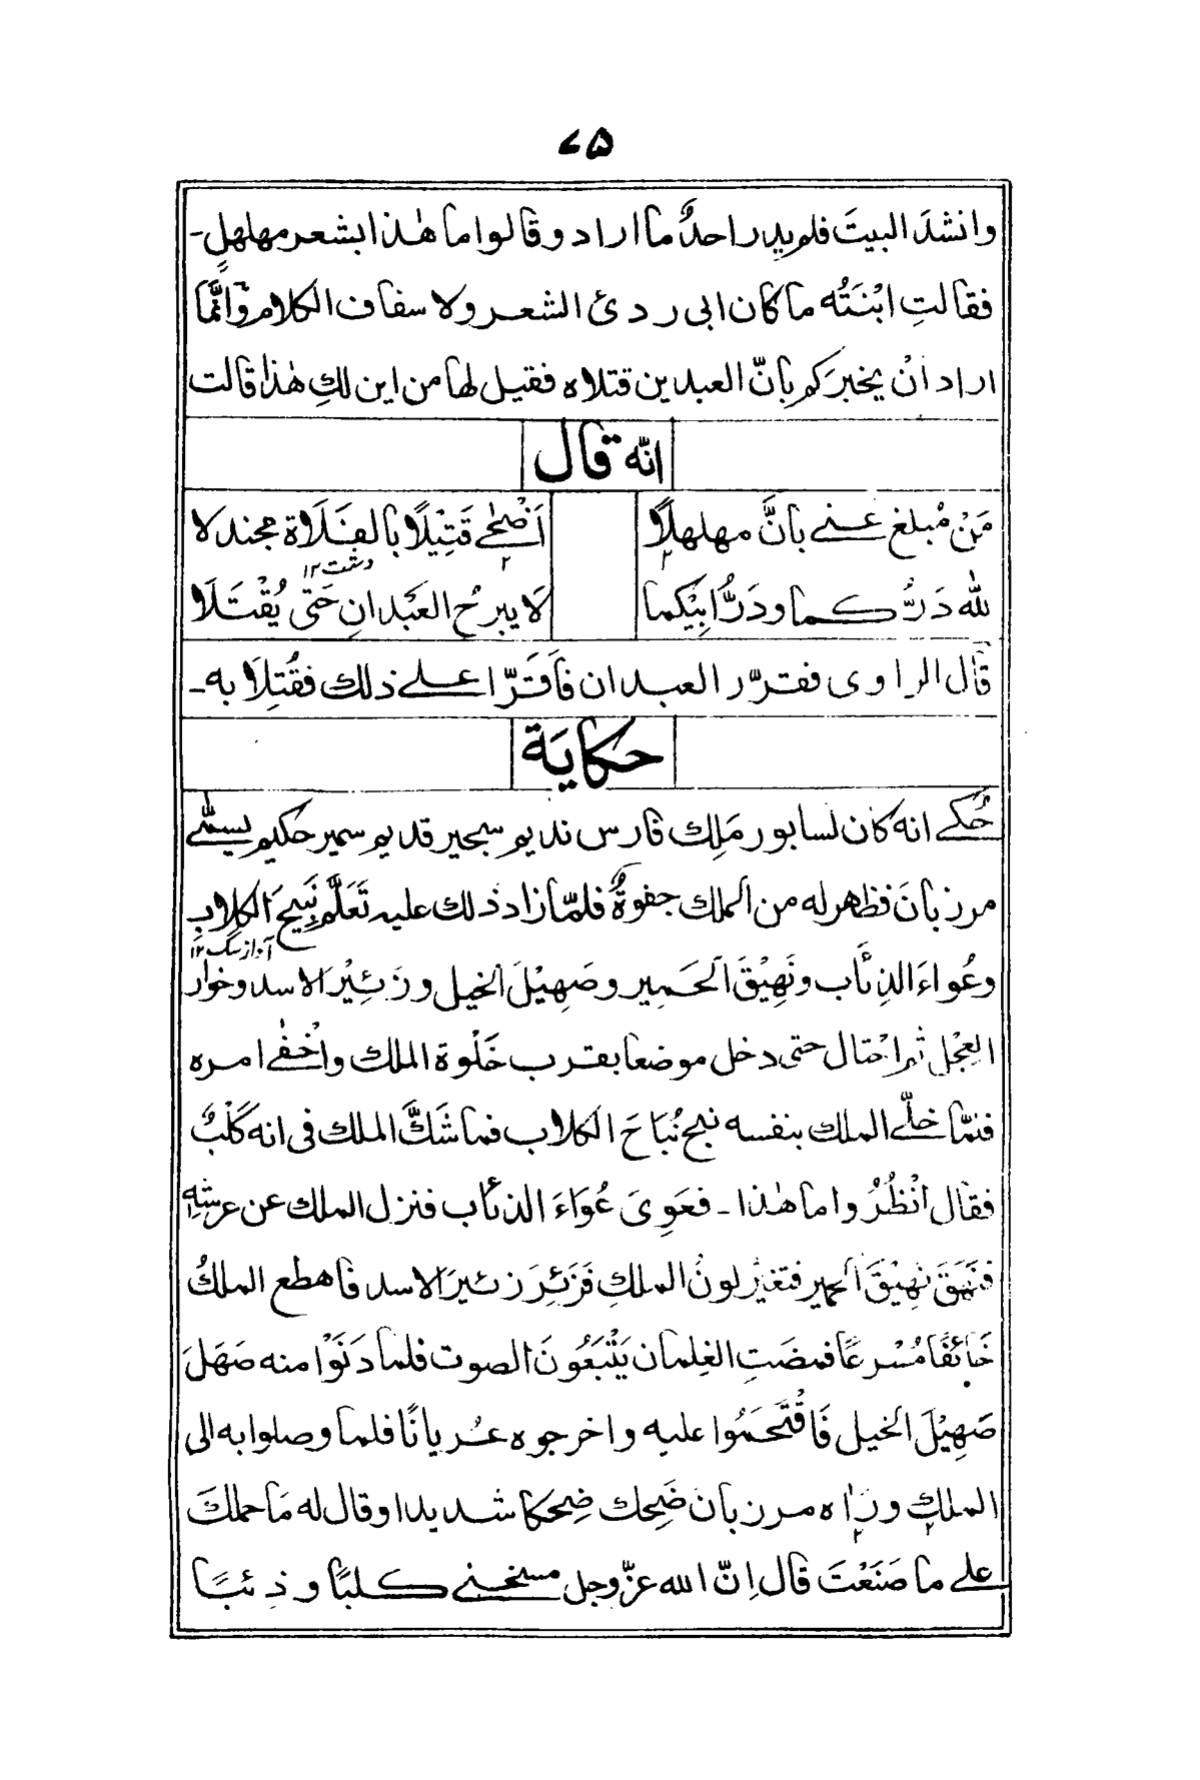 ۷۵
وانشدَ البيتَ فلم يدر احدٌ ما اراد وقالوا ما هٰذا بشعر مهلهلٍ۔
فقالتِ ابْنَتُه ما كان ابى ردىٔ الشعر ولا سفاف الكلام وَانَّما
اراد انْ يخبرَكم بانّ العبدين قتلاه فقيل لها من اين لكِ هٰذا قالت
انّه قال
مَنْ مُبلغ عنے بانَّ مهلهلًا اَضْحٰے قَتِيْلًا بالفَلَاة مجندلا
دشت ۱۲
لله دَرُّكما ودَرُّ ابِيْكما لَا يبرحُ العَبْدانِ حَتّٰى يُقْتَلَا
قال الراوى فقرّر العبدان فاَقَرَّا علے ذلك فقُتِلَا به۔
حكايَة
حُكے انه كان لسابور مَلِك فارس نديم سجير قديم سمير حكيم يسمّٰے
مرزبانَ فظهر له من الملك جفوةٌ فلمّا زاد ذلك عليه تَعَلَّم نَبِيحَ الكلابِ
آواز سگ ۱۲
وعُواءَ الذِئاب ونَهِيْقَ الحَمِير وصَهِيْلَ الخيل وزَئِيْرَ الاسد وخوار
العِجْل ثم احتال حتى دخل موضعا بقرب خَلْوة الملك واَخْفٰے امره
فلمّا خلّے الملك بنفسه نبح نُبَاحَ الكلاب فما شَكَّ الملك فى انه كَلْبٌ
فقال اُنْظُرُوا ما هٰذا۔ فعَوِىَ عُوَاءَ الذئاب فنزل الملك عن عرشه
فنَهَقَ نهِيْقَ الحمير فتغيّر لونُ الملكِ فَزَئِرَ زئيرَ الاسد فاهطع الملكُ
خَائفًا مُسْرعًا فمضَتِ الغِلمان يَتْبَعُونَ الصوت فلما دَنَوْا منه صَهَلَ
صَهِيْلَ الخيل فَاقْتَحَمُوا عليه واخرجوه عُريانًا فلما وصلوا به الى
الملكِ وراٰه مرزبان ضَحِك ضِحكا شديدا وقال له مَا حملكَ
علے ما صَنَعْتَ قال اِنّ الله عزّ وجل مسخنے كلبًا وذِئبًا